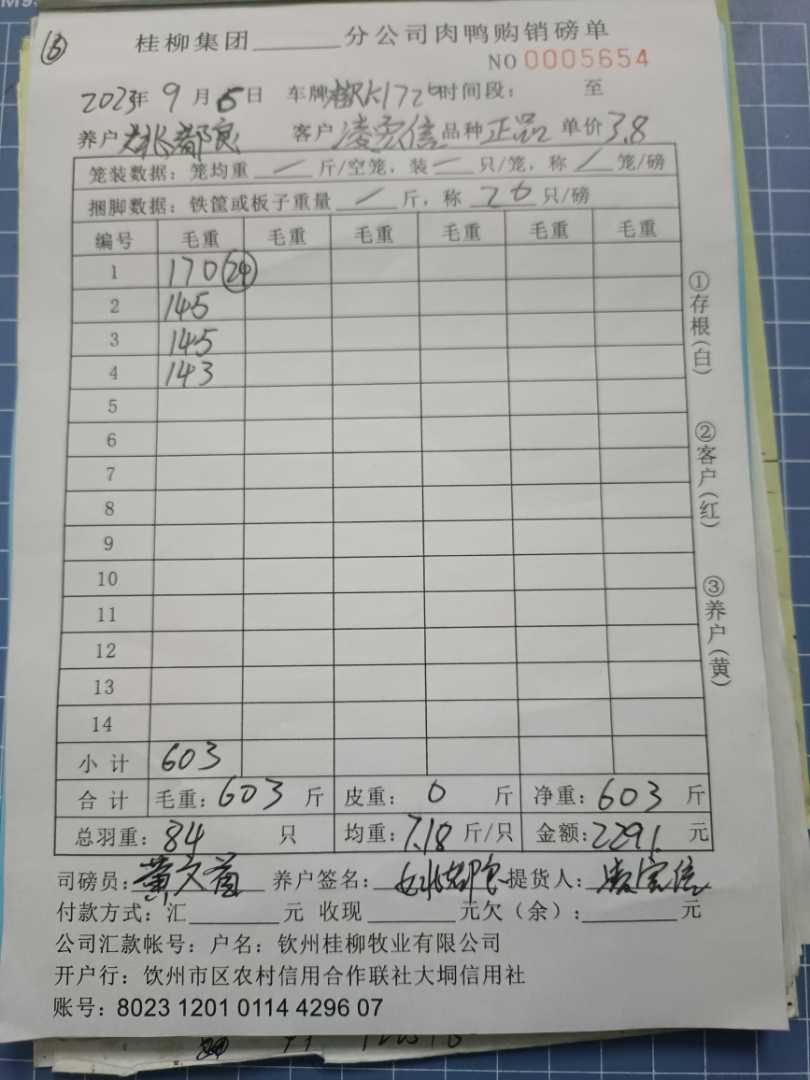 ⑥
桂柳集团______分公司肉鸭购销磅单
NO 0005654
2023年 9 月 5 日 车牌 172 时间段: 至
养户 姚都良 客户 凌宏信 品种 正品 单价 3.8
笼装数据: 笼均重 / 斤/空笼, 装 — 只/笼, 称 / 笼/磅
捆脚数据: 铁筐或板子重量 / 斤, 称 20 只/磅
编号 毛重 毛重 毛重 毛重 毛重 毛重
1 170 (24)
2 145
3 145
4 143
5
6
7
8
9
10
11
12
13
14
小计 603
合计 毛重: 603 斤 皮重: 0 斤 净重: 603 斤
总羽重: 84 只 均重: 7.18 斤/只 金额: 2291. 元
司磅员: 黄文首 养户签名: 姚都良 提货人: 凌宏信
付款方式: 汇______元 收现______元欠(余):______元
公司汇款帐号: 户名: 钦州桂柳牧业有限公司
开户行: 饮州市区农村信用合作联社大垌信用社
账号: 8023 1201 0114 4296 07
①存根(白)
②客户(红)
③养户(黄)